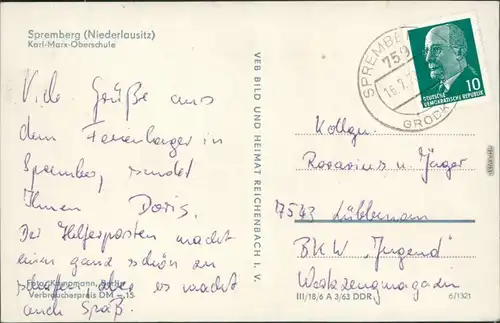 Spremberg (Niederlausitz)
Karl-Marx-Oberschule
Viele Grüße aus
dem Ferienlager in
Spremberg, sendet
Ihnen Doris.
Der Helferposten macht
einen ganz schön zu
schaffen, aber es macht
auch Spaß.
Foto: Berlin
Verbraucherpreis DM -,15
VEB BILD UND HEIMAT REICHENBACH I. V.
SPREMBE
759
16.7.
GRODK
DEUTSCHE
DEMOKRATISCHE REPUBLIK
10
Kollgn.
Rosarius u. Jäger
7543 Lübbenau
BKW "Jugend"
Werkzeugmagazin
III/18/6 A 3/63 DDR
6/1321